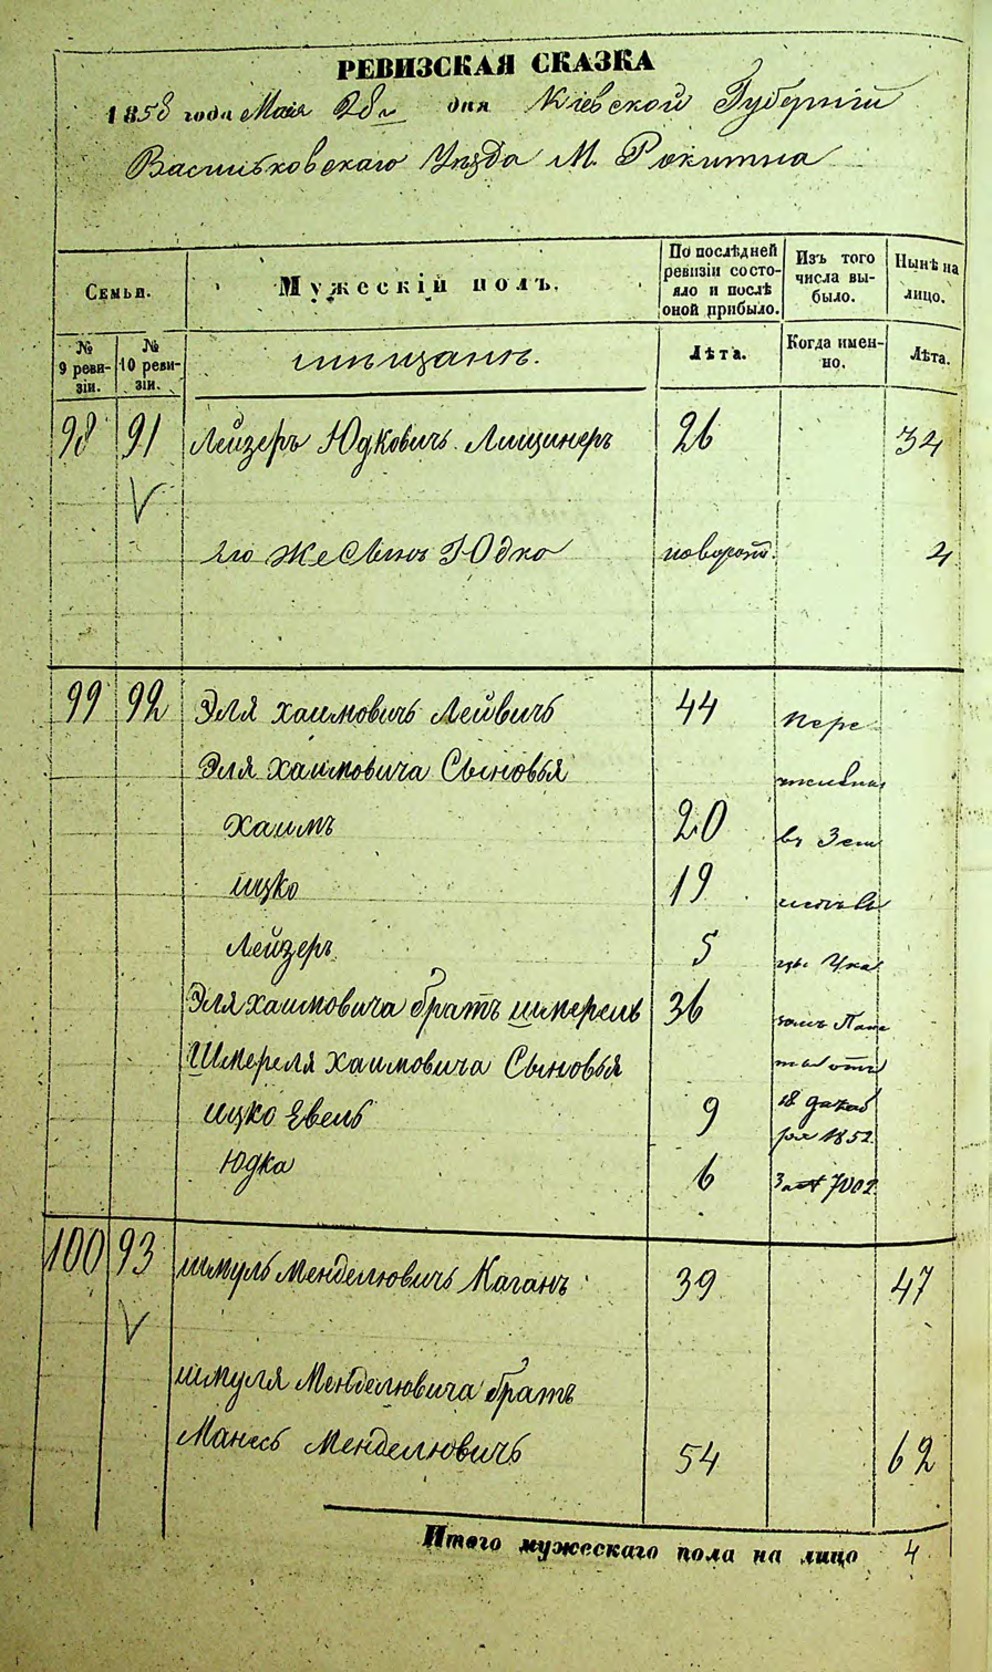 РЕВИЗСКАЯ СКАЗКА
1858 года Мая 28 дня Кіевской Губерніи
Васильковскаго Уѣзда М. Рокитна
Семьи.
Мужескій полъ.
По послѣдней ревизіи состояло и послѣ оной прибыло.
Изъ того числа выбыло.
Нынѣ на лицо.
№ 9 ревизіи.
№ 10 ревизіи.
мѣщане.
Лѣта.
Когда именно.
Лѣта.
98 91 Лейзеръ Юдковичъ Лищинеръ 26 34
Его же Сынъ Юдко новорож. 4
99 92 Эля Хаимовичъ Лейвичъ 44 пере
Эля Хаимовича Сыновья
Хаимъ 20 въ Зем
ицко 19
Лейзеръ 5 Ука
Эля Хаимовича братъ Шмерель 36 зомъ Пала
Шмереля Хаимовича Сыновья ты отъ
ицко Евель 9 18 декаб
ря 1852
Юдка 6 За № 7002
100 93 шмуль Менделювичъ Каганъ 39 47
шмуля Менделювича братъ
Манесь Менделювичъ 54 62
Итого мужескаго пола на лицо 4